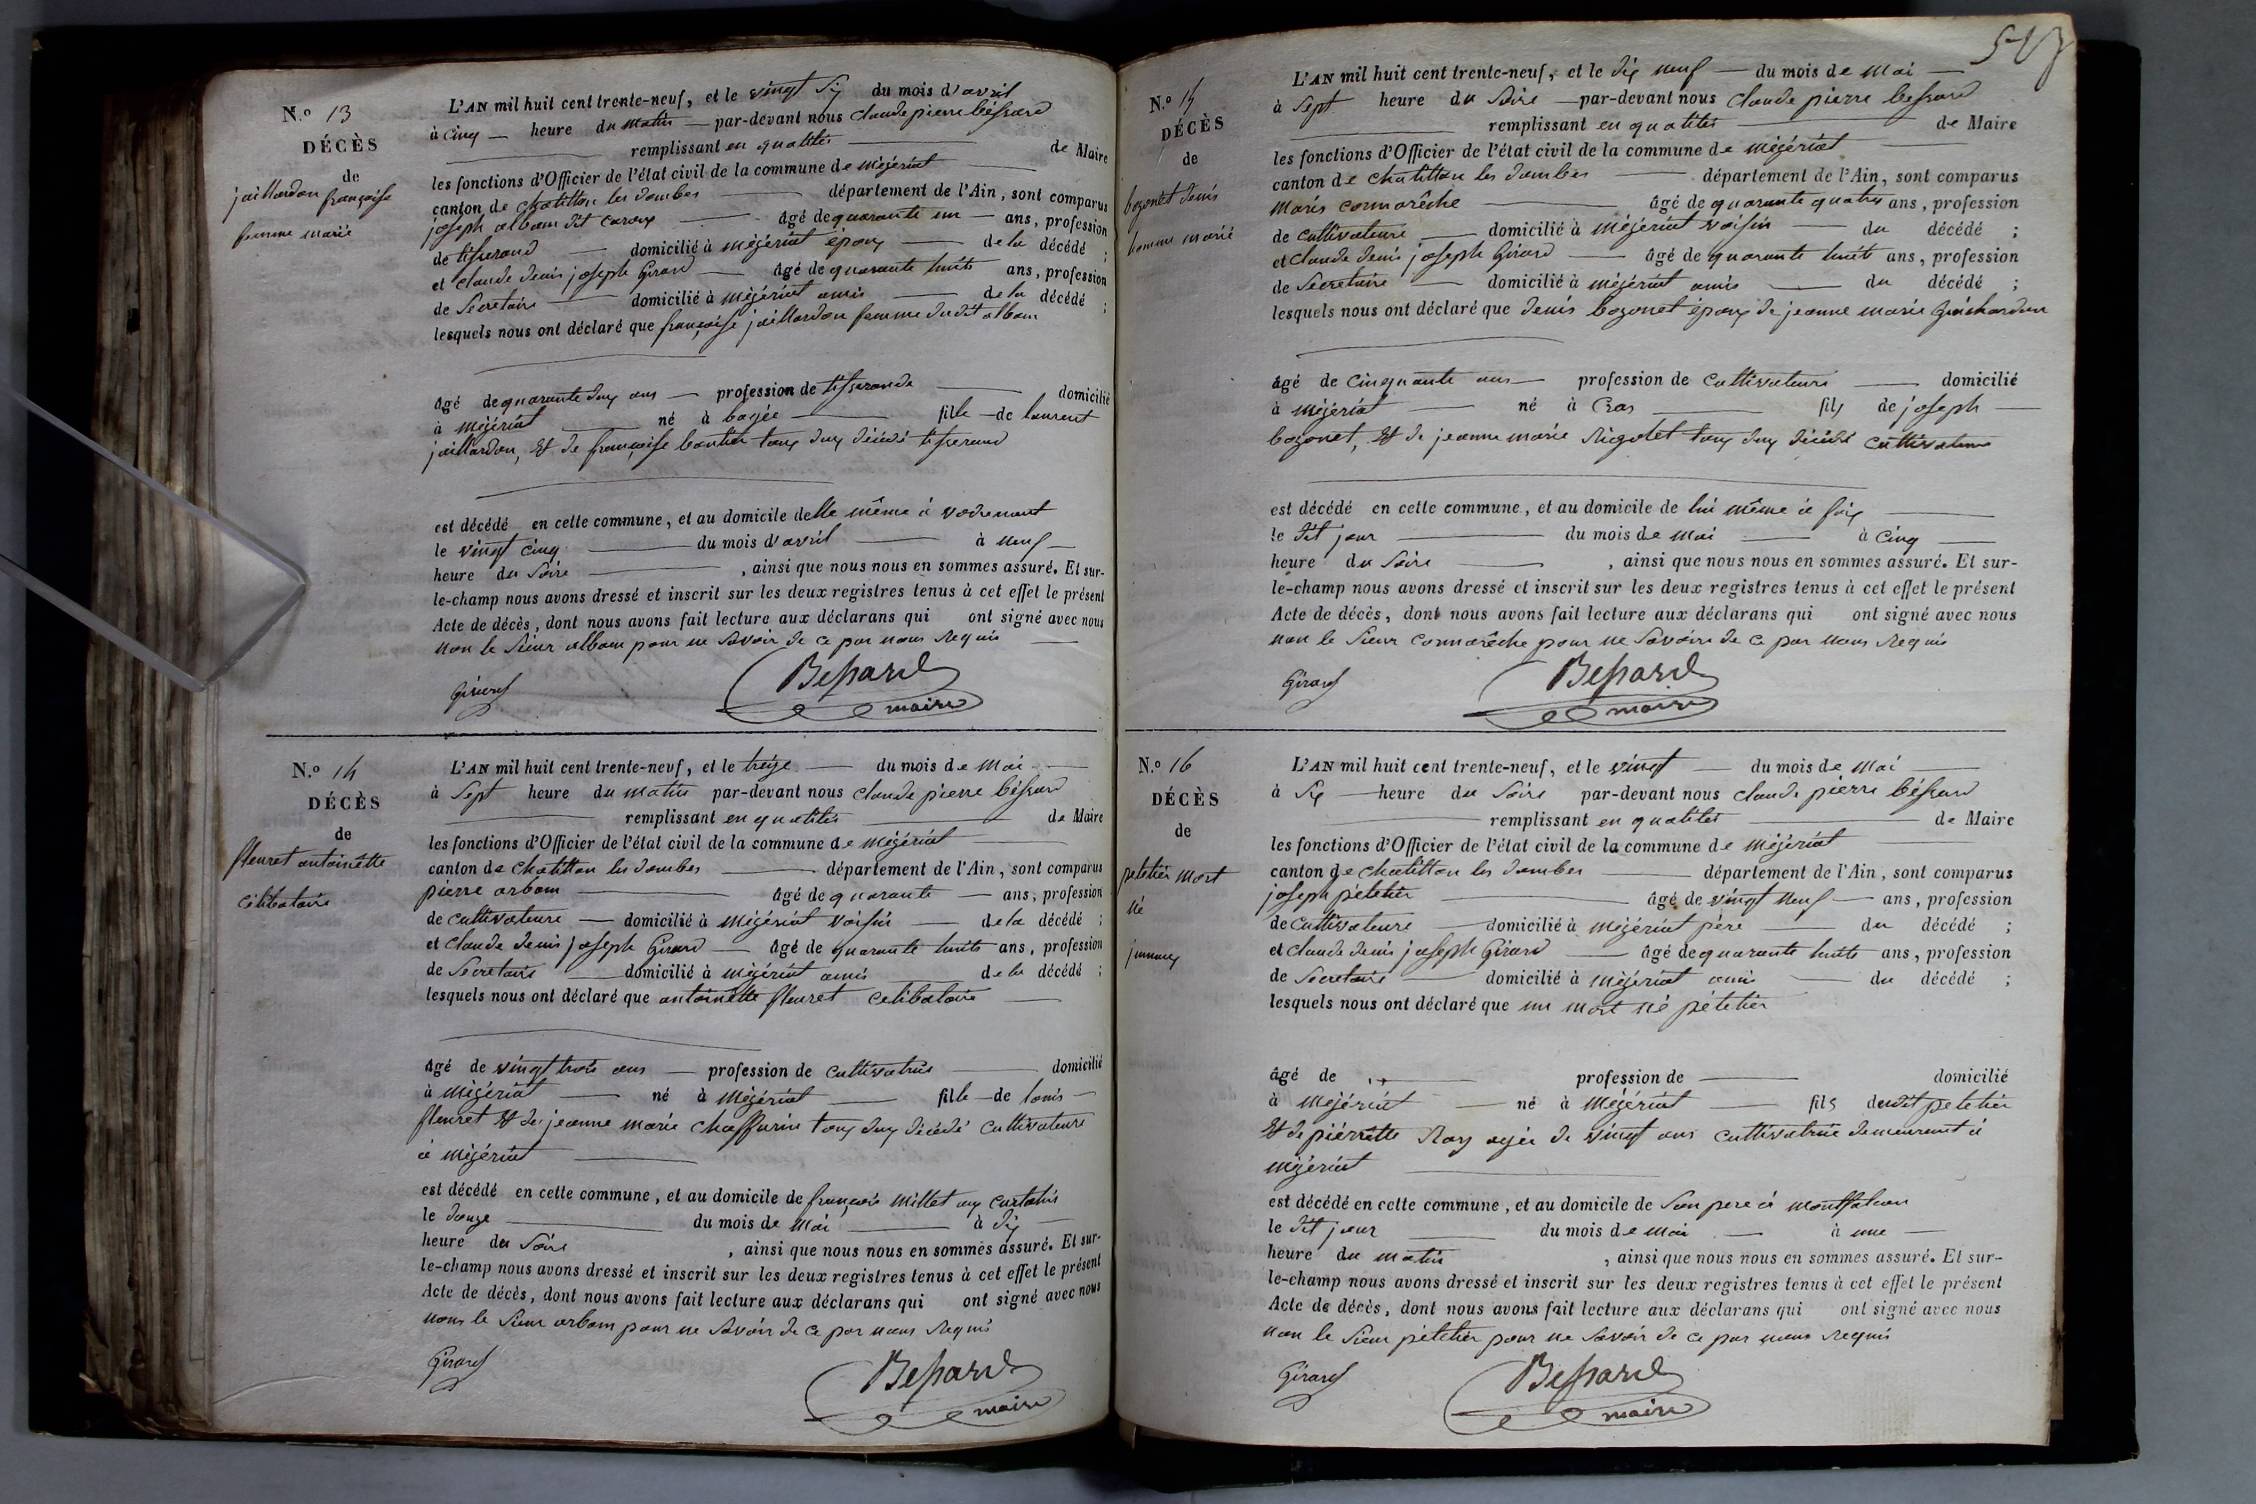 N.o 13
DÉCÈS
de
jaillardon françoise
femme marié
L'AN mil huit cent trente-neuf, et le vingt six du mois d'avril
à cinq heure du matin par-devant nous claude pierre béssard
remplissant en qualités de Maire
les fonctions d'Officier de l'état civil de la commune de mézériat
canton de chatillon les dombes département de l'Ain, sont comparus
joseph albam dit caroux âgé de quarante un ans, profession
de tisserand domicilié à mézériat époux de la décédé ;
et claude denis joseph Girard âgé de quarante huits ans, profession
de Secretaire domicilié à mézériat amis de la décédé ;
lesquels nous ont déclaré que françoise jaillardon femme dudit albam
âgé de quarante dux ans profession de tisserande domicilié
à mézériat né à bagée fille de laurent
jaillardon, et de françoise tous dux décédé tisserand
est décédé en cette commune, et au domicile delle même à vodremont
le vingt cinq du mois d'avril à neuf
heure du soire , ainsi que nous nous en sommes assuré. Et sur-
le-champ nous avons dressé et inscrit sur les deux registres tenus à cet effet le présent
Acte de décès, dont nous avons fait lecture aux déclarans qui ont signé avec nous
non le sieur albam pour ne savoir de ce par nous requis
Girard Bessard
maire
N.o 14
DÉCÈS
de
fleuret antoinêtte
célibataire
L'AN mil huit cent trente-neuf, et le treize du mois de mai
à sept heure du matin par-devant nous claude pierre béssard
remplissant en qualités de Maire
les fonctions d'Officier de l'état civil de la commune de mézériat
canton de chatillon les dombes département de l'Ain, sont comparus
pierre arbam âgé de quarante ans, profession
de cultivateure domicilié à mézériat voisin de la décédé ;
et claude denis joseph Girard âgé de quarante huits ans, profession
de Secretaire domicilié à mézériat amis de la décédé ;
lesquels nous ont déclaré que antoinêtte fleuret celibataire
âgé de vingt trois ans profession de cultivatrice domicilié
à mézériat né à mézériat fille de louis
fleuret et de jeanne marie chaffurin tous dux décédé cultivateure
à mézériat
est décédé en cette commune, et au domicile de françois millet aux curtatis
le douze du mois de mai à dix
heure du soire , ainsi que nous nous en sommes assuré. Et sur-
le-champ nous avons dressé et inscrit sur les deux registres tenus à cet effet le présent
Acte de décès, dont nous avons fait lecture aux déclarans qui ont signé avec nous
non le sieur arbam pour ne savoir de ce par nous requis
Girard Bessard
maire
N.o 15
DÉCÈS
de
bozonet denis
homme marié
L'AN mil huit cent trente-neuf, et le dix neuf du mois de mai
à sept heure du soire par-devant nous claude pierre béssard
remplissant en qualités de Maire
les fonctions d'Officier de l'état civil de la commune de mézériat
canton de chatillon les dombes département de l'Ain, sont comparus
maris connarêche âgé de quarante quatre ans, profession
de cultivateure domicilié à mézériat voisin du décédé ;
et claude denis joseph Girard âgé de quarante huits ans, profession
de Secretaire domicilié à mézériat amis du décédé ;
lesquels nous ont déclaré que denis bozonet époux de jeanne marie Guichardon
âgé de cinquante ans profession de cultivateure domicilié
à mézériat né à Cras fils de joseph
bozonet, et de jeanne marie Rigotet tous dux décédé cultivateure
est décédé en cette commune, et au domicile de lui même à foix
le dit jour du mois de mai à cinq
heure du soire , ainsi que nous nous en sommes assuré. Et sur-
le-champ nous avons dressé et inscrit sur les deux registres tenus à cet effet le présent
Acte de décès, dont nous avons fait lecture aux déclarans qui ont signé avec nous
non le sieur connarêche pour ne savoire de ce par nous requis
Girard Bessard
maire
N.o 16
DÉCÈS
de
petetier mort
né
jumaux
L'AN mil huit cent trente-neuf, et le vingt du mois de mai
à six heure du soire par-devant nous claude pierre béssard
remplissant en qualités de Maire
les fonctions d'Officier de l'état civil de la commune de mézériat
canton de chatillon les dombes département de l'Ain, sont comparus
joseph pétetier âgé de vingt neuf ans, profession
de cultivateure domicilié à mézériat père du décédé ;
et claude denis joseph Girard âgé de quarante huits ans, profession
de Secretaire domicilié à mézériat amis du décédé ;
lesquels nous ont déclaré que un mort né pétetier
âgé de profession de domicilié
à mézériat né à mézériat fils dudit petetier
et de piérrette Ray agée de vingt ans cultivatrice demeurant à
mézériat
est décédé en cette commune, et au domicile de son pere à montfalcon
le dit jour du mois de mai à une
heure du matin , ainsi que nous nous en sommes assuré. Et sur-
le-champ nous avons dressé et inscrit sur les deux registres tenus à cet effet le présent
Acte de décès, dont nous avons fait lecture aux déclarans qui ont signé avec nous
non le sieur pétetier pour ne savoir de ce par nous requis
Girard Bessard
maire